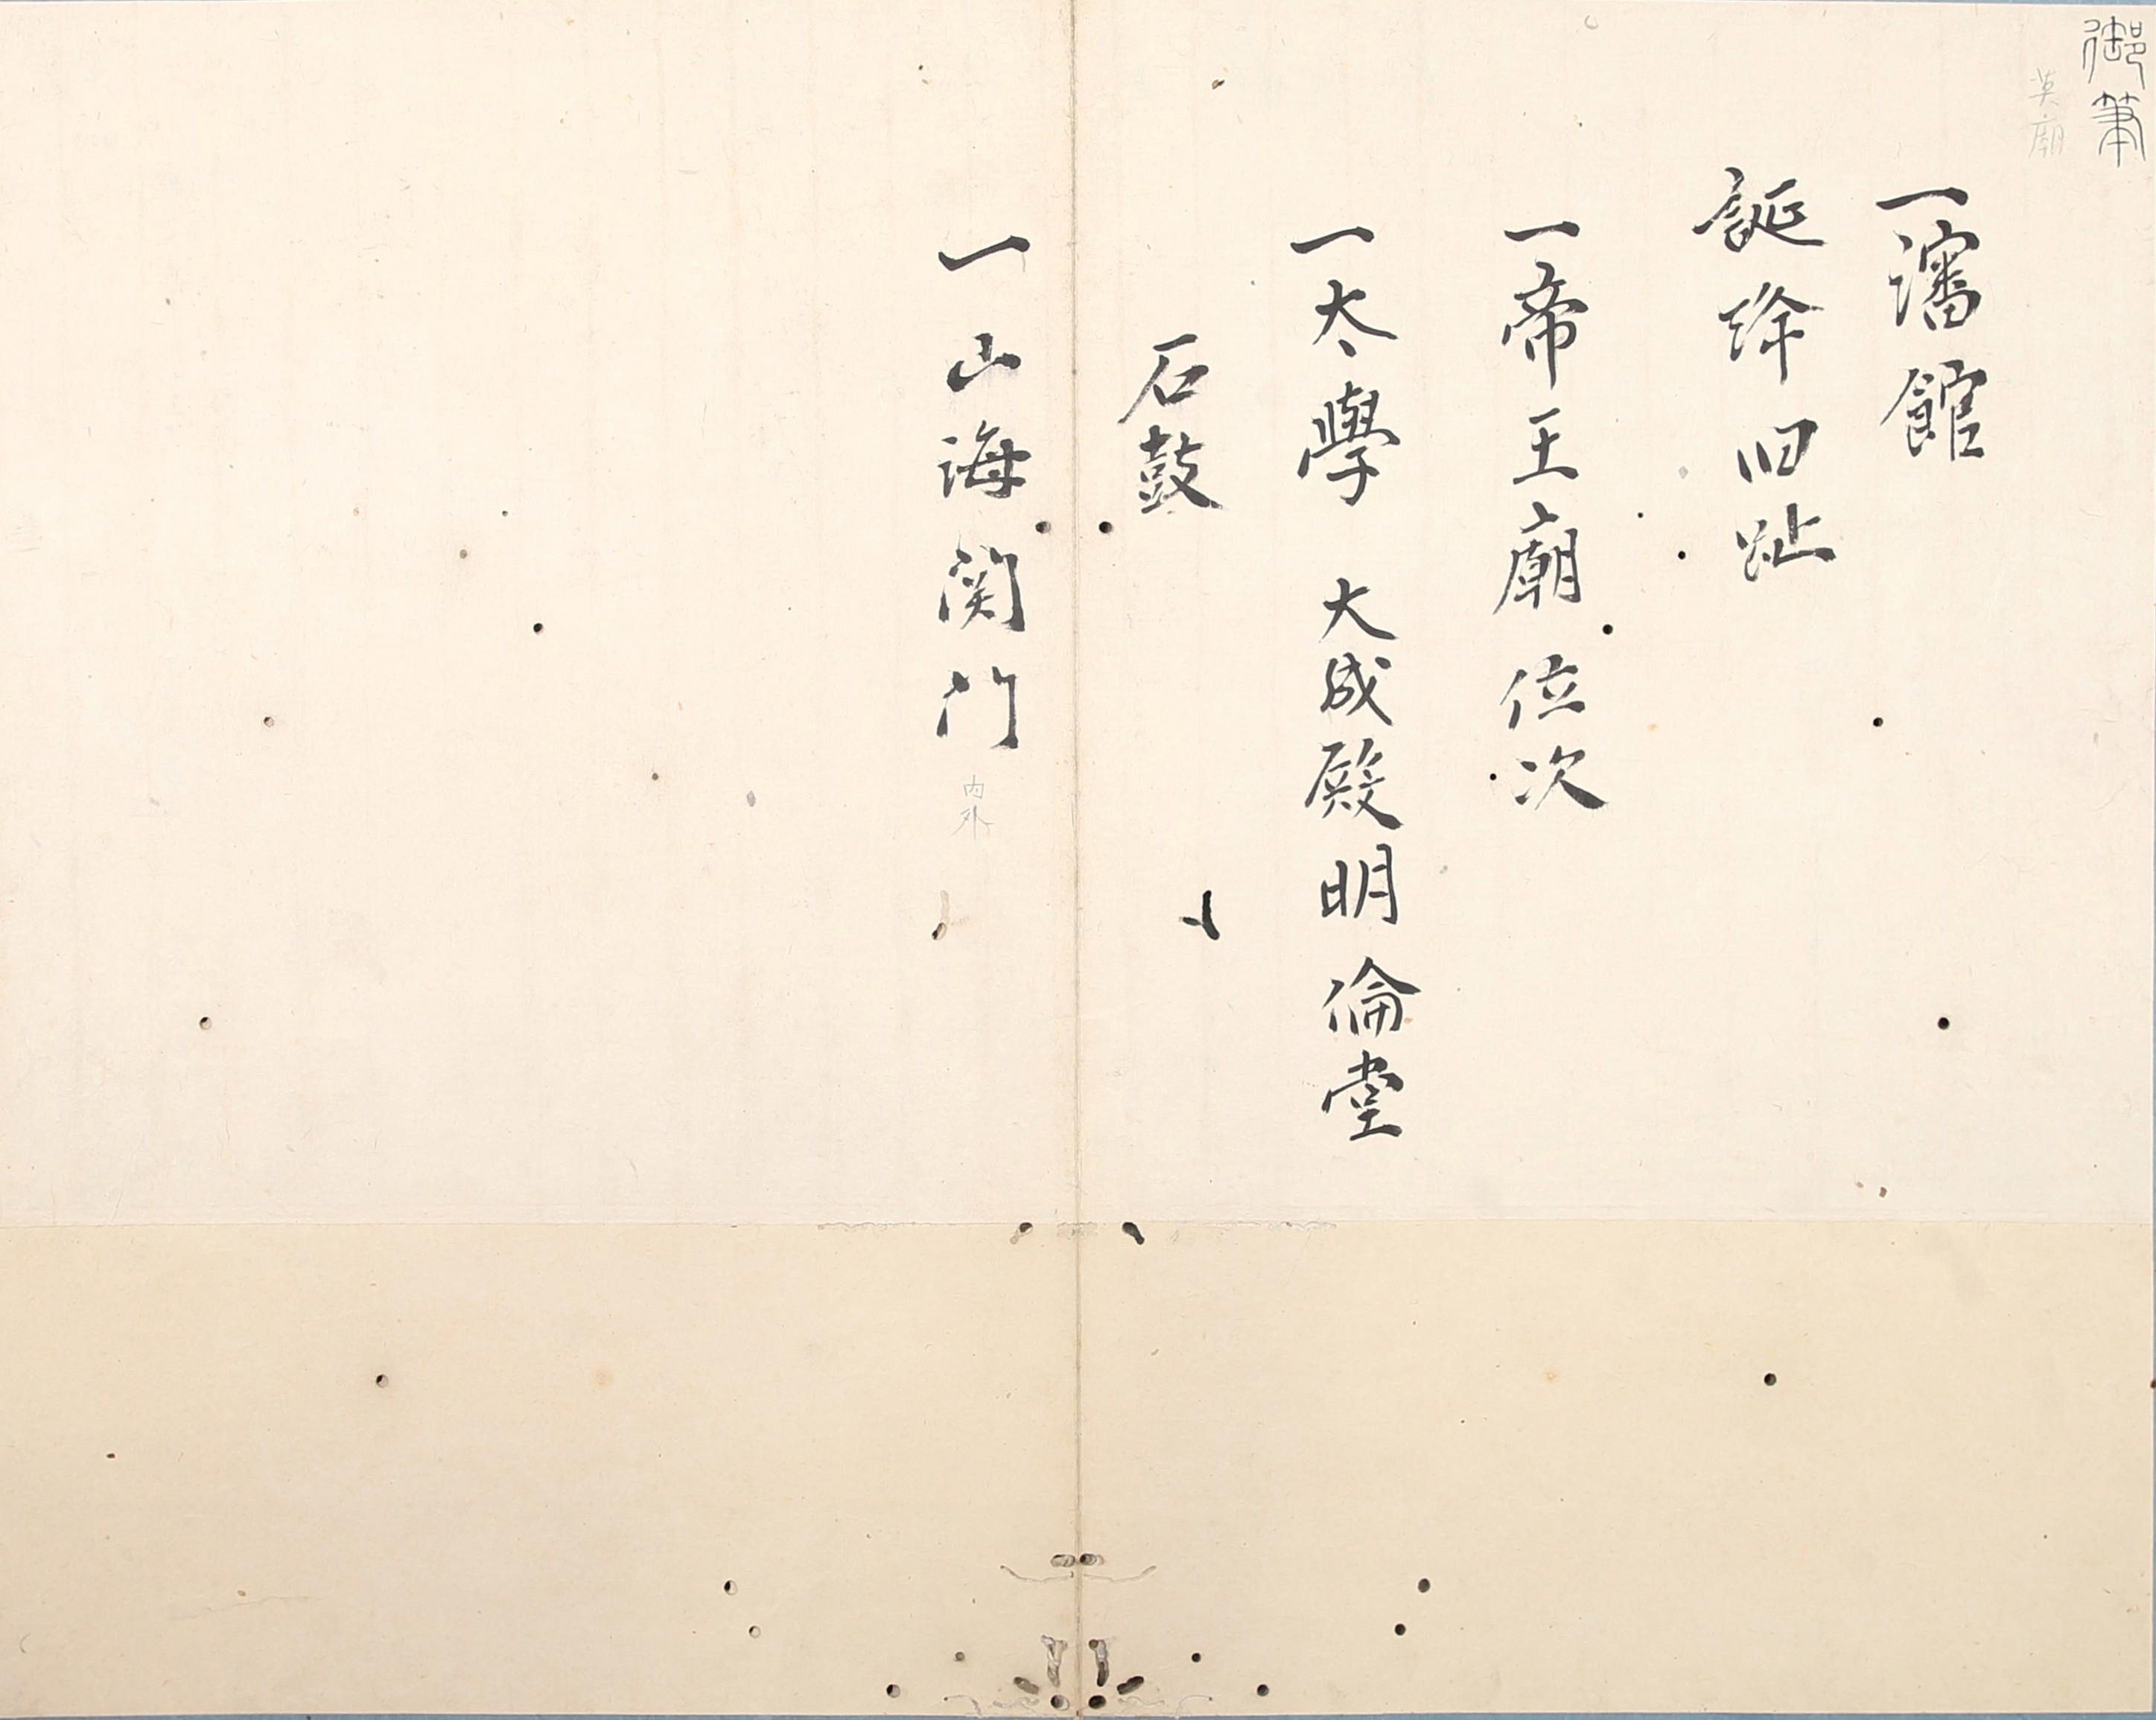 御筆
英廟
一瀋館
誕降旧趾
一帝王廟位次
一太學 大成殿明倫堂
石鼓
一山海関門 内外